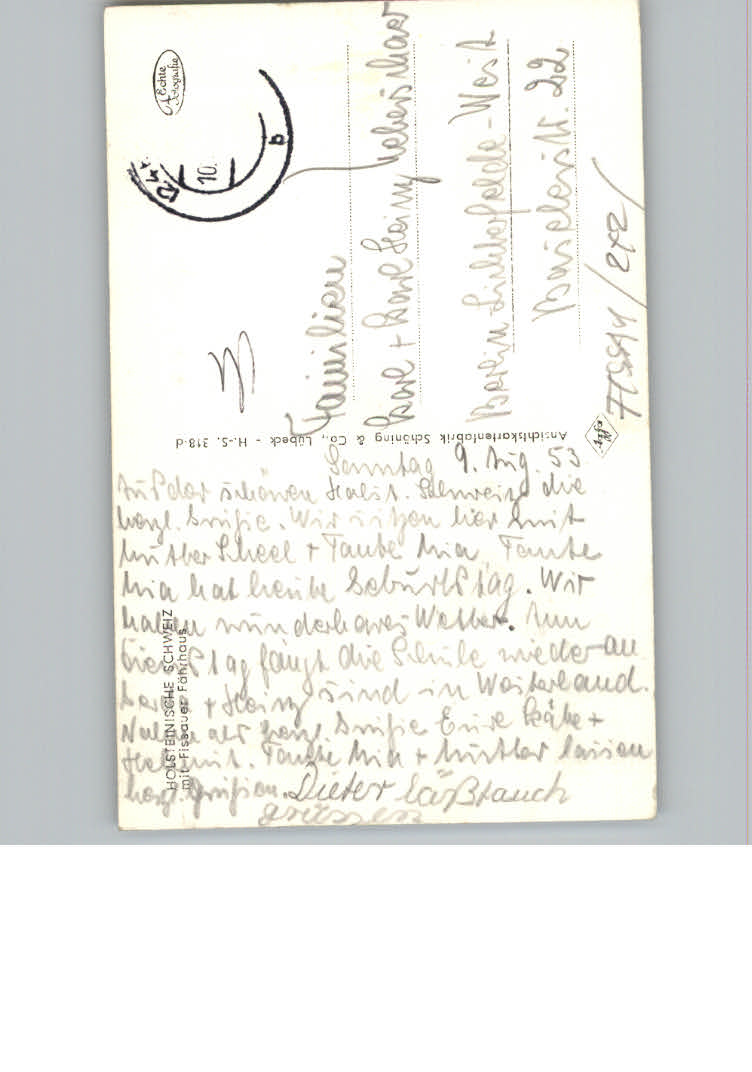 Sonntag 9. Aug. 53
Aus der schönen Holst. Schweiz die
herzl. Grüße. Wir sitzen hier mit
Mutter Scheel + Tante Mia. Tante
Mia hat heute Geburtstag. Wir
haben wunderbares Wetter. Am
Dienstag fängt die Schule wieder an
+ Heinz sind in Westerland.
Nochmals herzl. Grüße Eure Käthe +
Hellmut. Tante Mia + Mutter lassen
herzl. grüßen. Dieter läßt auch
grüssen
HOLSTEINISCHE SCHWEIZ
mit Fissauer Fährhaus
Ansichtskartenfabrik Schöning & Co., Lübeck - H.-S. 318-d
Agfa
Echte Fotografie
10.
b
Familien
Karl + Karl Heinz
Berlin Lichterfelde-West
Baselerstr. 22